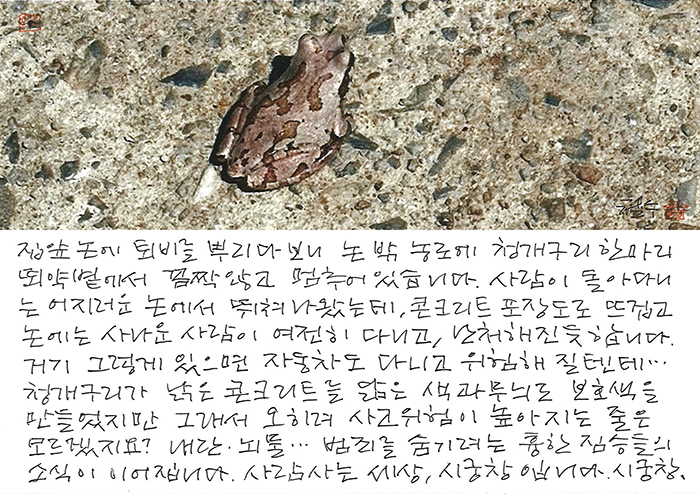 철수
집앞 논에 퇴비를 뿌리다보니 논 밖 농로에 청개구리 한마리
뙤약볕에서 꼼짝 않고 멈추어 있습니다. 사람이 돌아다니
는 어지러운 논에서 뛰쳐나왔는데, 콘크리트 포장도로 뜨겁고
논에는 사나운 사람이 여전히 다니고, 난처해진듯 합니다.
거기 그렇게 있으면 자동차도 다니고 위험해 질텐데…
청개구리가 낡은 콘크리트를 닮은 색과무늬로 보호색을
만들었지만 그래서 오히려 사고위험이 높아지는 줄은
모르겠지요? 내란·뇌물… 범죄를 숨기려는 흉한 짐승들의
소식이 이어집니다. 사람사는 세상, 시궁창입니다. 시궁창.